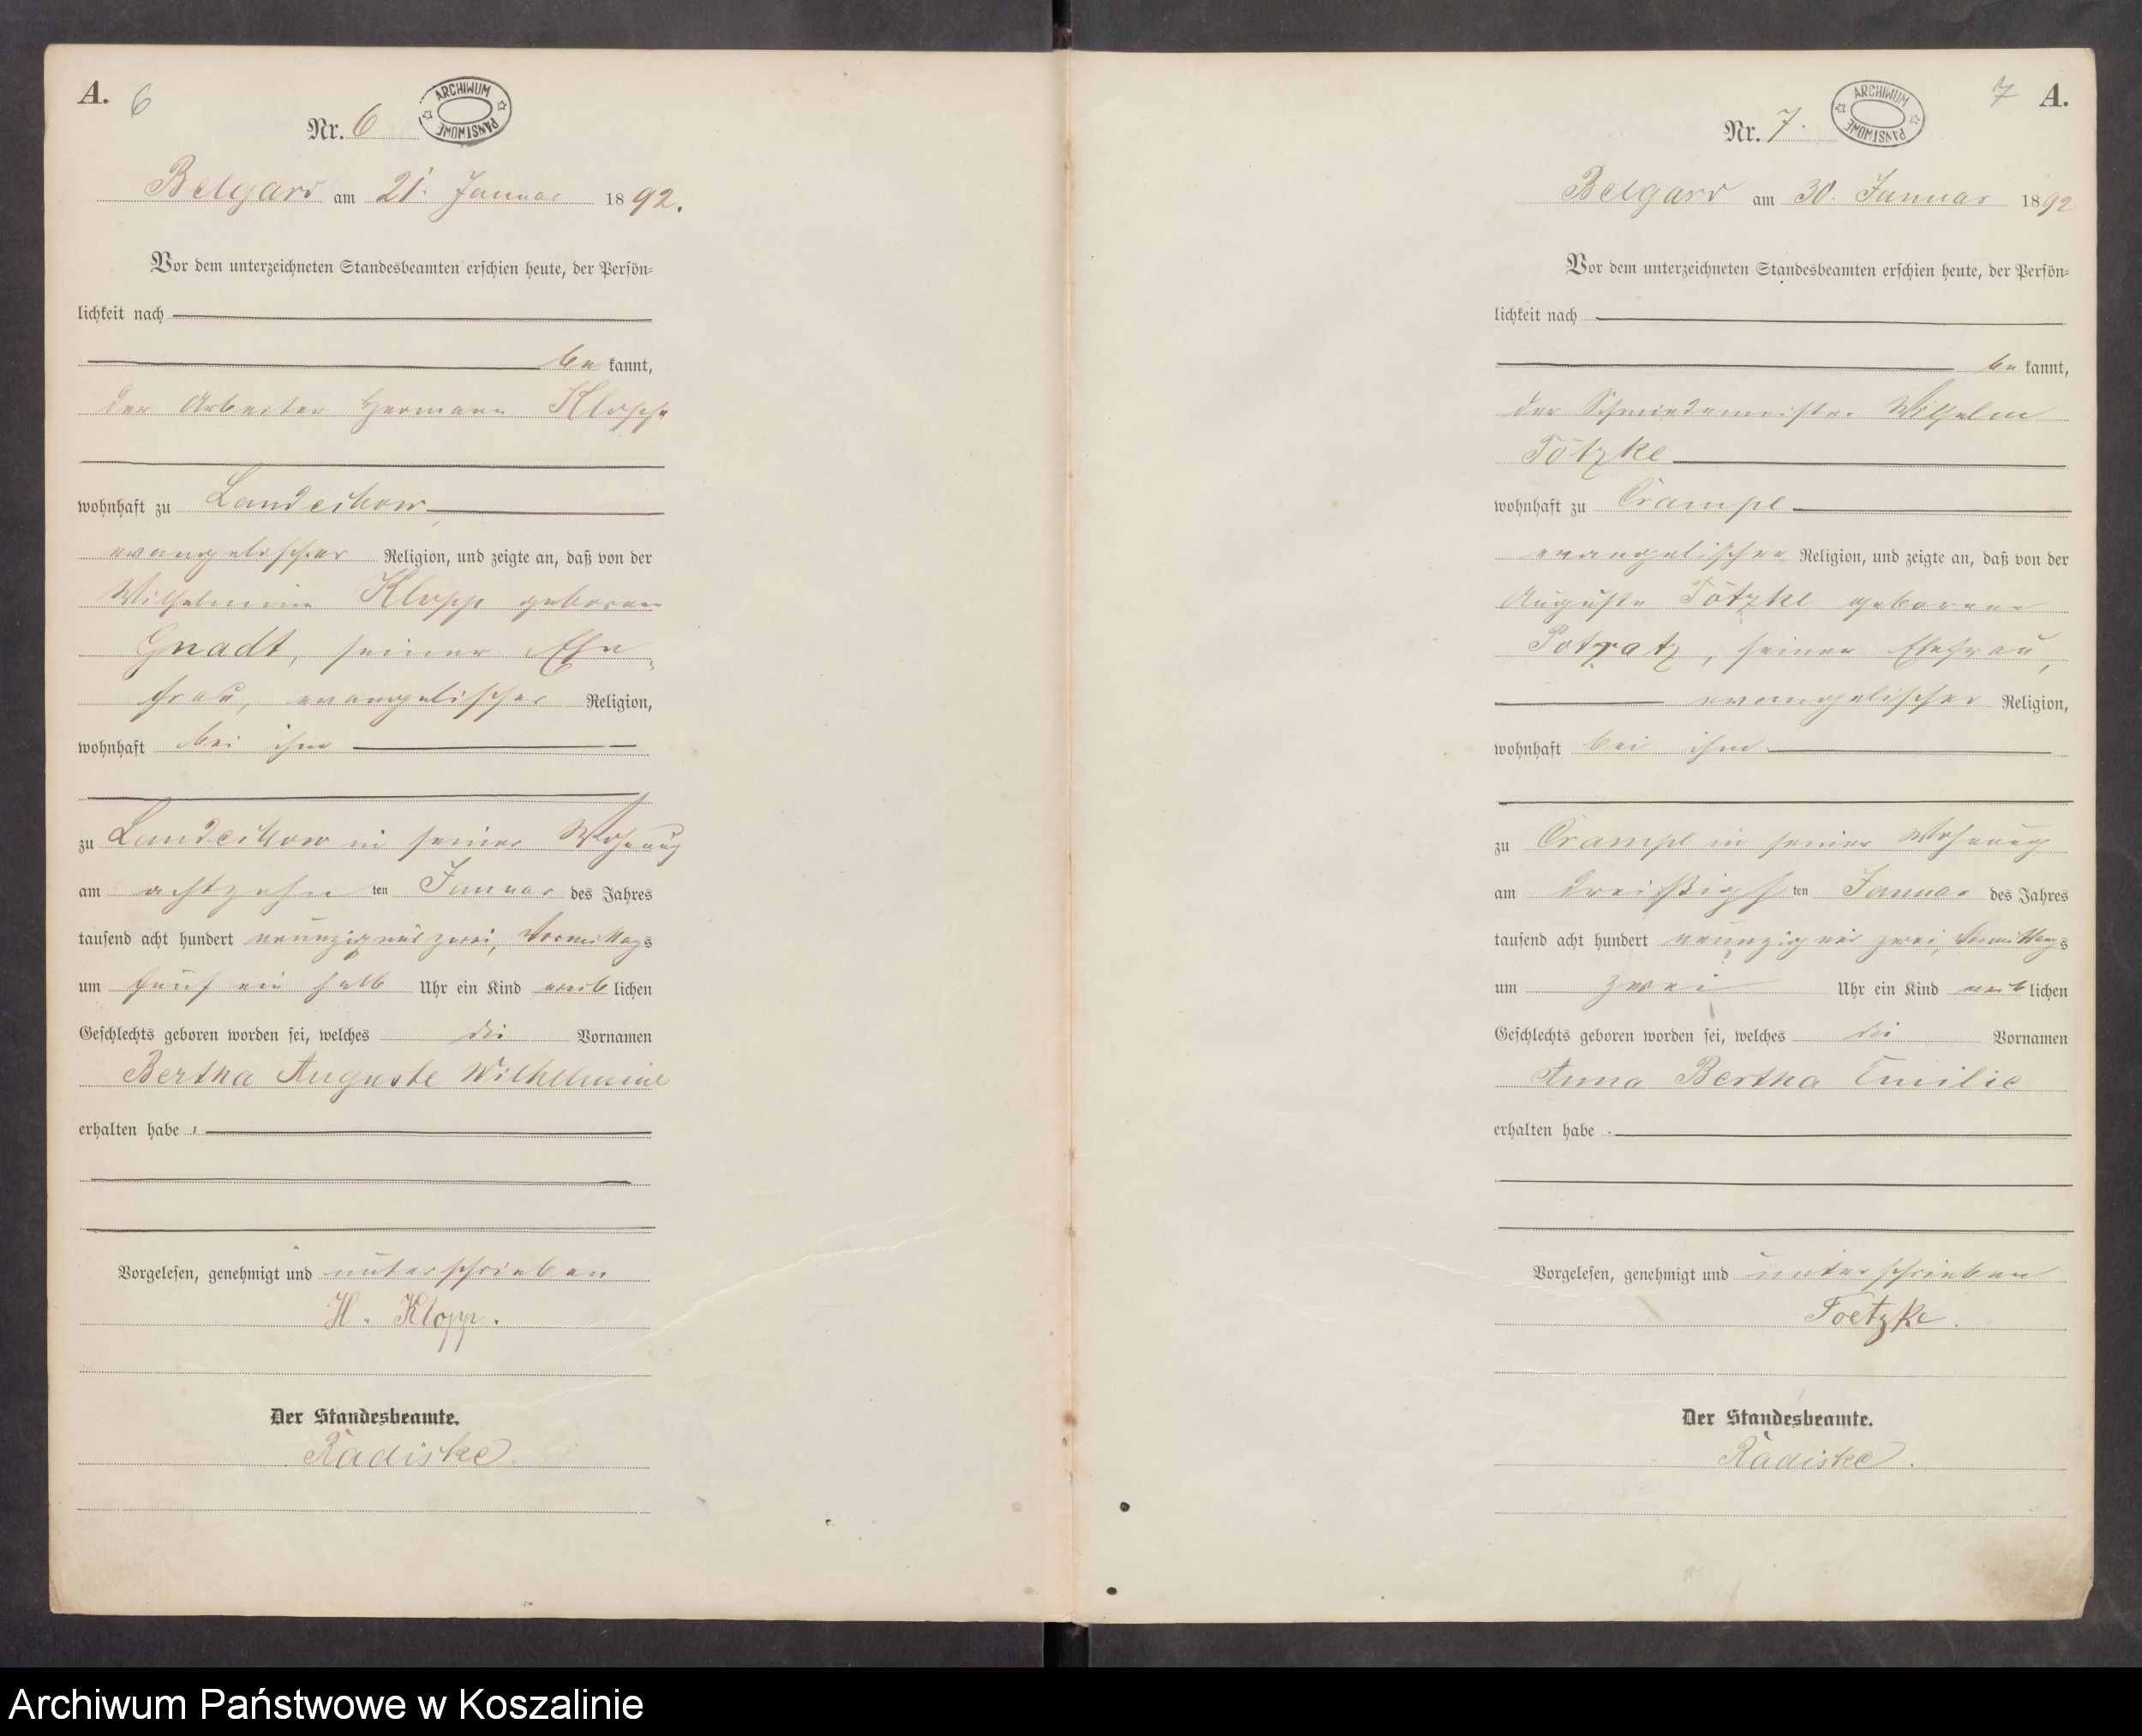 A. 6
Nr. 6
ARCHIWUM PAŃSTWOWE
Belgard am 21. Januar 1892.
Vor dem unterzeichneten Standesbeamten erschien heute, der Persön=
lichkeit nach
be kannt,
der Arbeiter Hermann Klopp
wohnhaft zu Landechow
evangelischer Religion, und zeigte an, daß von der
Wilhelmine Klopp geborene
Gnadt, seiner Ehe=
frau, evangelischer Religion,
wohnhaft bei ihm
zu Landechow in seiner Wohnung
am achtzehn ten Januar des Jahres
tausend acht hundert neunzig und zwei, Vormittags
um fünf ein halb Uhr ein Kind weib lichen
Geschlechts geboren worden sei, welches die Vornamen
Bertha Auguste Wilhelmine
erhalten habe.
Vorgelesen, genehmigt und unterschrieben
H. Klopp.
Der Standesbeamte.
Radiske
7 A.
Nr. 7.
ARCHIWUM PAŃSTWOWE
Belgard am 30. Januar 1892
Vor dem unterzeichneten Standesbeamten erschien heute, der Persön=
lichkeit nach
be kannt,
der Schmiedemeister Wilhelm
Tötzke
wohnhaft zu Crampe
evangelischer Religion, und zeigte an, daß von der
Auguste Tötzke geborene
Potratz, seiner Ehefrau,
evangelischer Religion,
wohnhaft bei ihm
zu Crampe in seiner Wohnung
am dreißigs ten Januar des Jahres
tausend acht hundert neunzig und zwei, Vormittags
um zwei Uhr ein Kind weib lichen
Geschlechts geboren worden sei, welches die Vornamen
Anna Bertha Emilie
erhalten habe.
Vorgelesen, genehmigt und unterschrieben
Toetzke.
Der Standesbeamte.
Radiske.
Archiwum Państwowe w Koszalinie